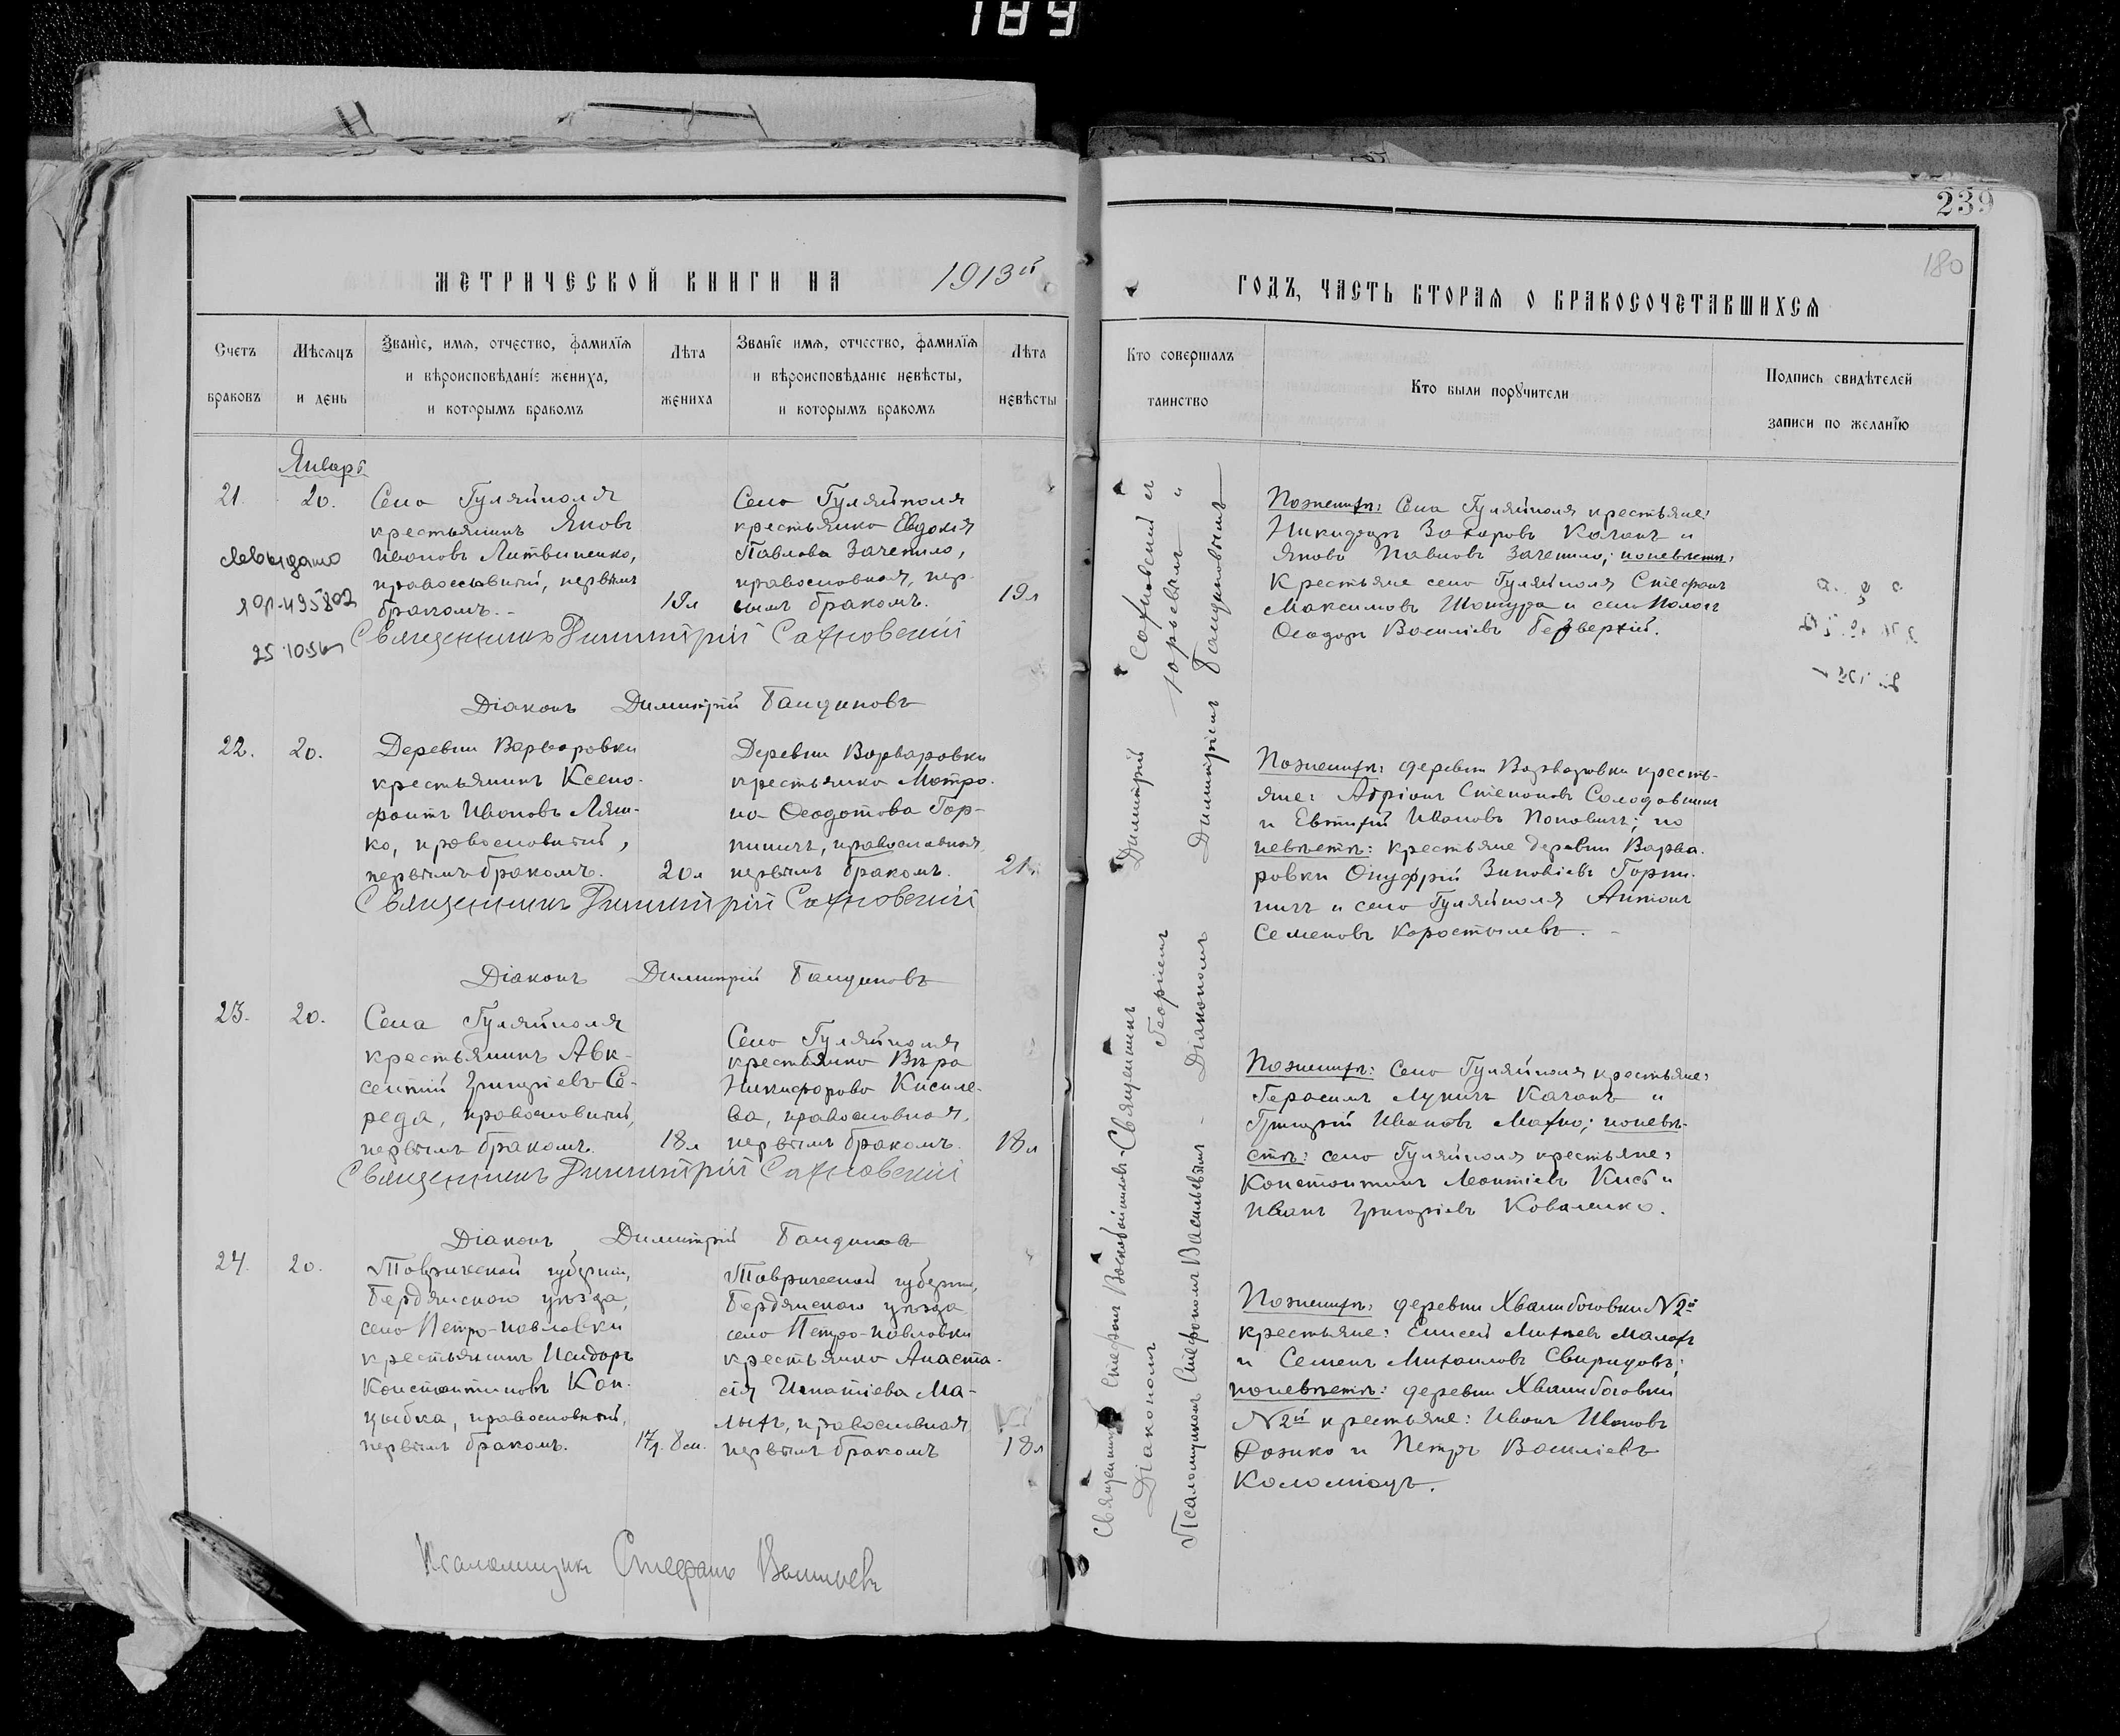 189
239
180
МЕТРИЧЕСКОЙ КНИГИ НА 1913й
ГОДЪ, ЧАСТЬ ВТОРАЯ О БРАКОСОЧЕТАВШИХСЯ
Счетъ браковъ
Мѣсяцъ и день
Званіе, имя, отчество, фамилія
и вѣроисповѣданіе жениха,
и которымъ бракомъ
Лѣта жениха
Званіе имя, отчество, фамилія
и вѣроисповѣданіе невѣсты,
и которымъ бракомъ
Лѣта невѣсты
Кто совершалъ
таинство
Кто были поручители
Подпись свидѣтелей
записи по желанію
Январь
21.
20.
Села Гуляйполя
крестьянинъ Яковъ
Ивановъ Литвиненко,
православный, первымъ
бракомъ.
19л
Села Гуляйполя
крестьянка Евдокія
Павлова Зачепило,
православная, пер-
вымъ бракомъ.
19л
Священникъ Димитрій Сахновскій
Діаконъ Димитрій Бандиновъ
Поженихѣ: Села Гуляйполя крестьяне:
Никифоръ Захаровъ Качанъ и
Яковъ Павловъ Зачепило; поневѣстѣ:
Крестьяне села Гуляйполя Стефанъ
Максимовъ Шопура и села Пологъ
Ѳеодоръ Василіевъ Безверхій.
22.
20.
Деревни Варваровки
крестьянинъ Ксено-
фонтъ Ивановъ Ляш-
ко, православный,
первымъ бракомъ.
20л
Деревни Варваровки
крестьянка Матро-
на Ѳеодотова Гор-
пиничъ, православная
первымъ бракомъ.
21.
Священникъ Димитрій Сахновскій
Діаконъ Димитрій Бандиновъ
Поженихѣ: деревни Варваровки кресть-
яне: Адріанъ Степановъ Солодовникъ
и Евтихій Ивановъ Поповичъ; по
невѣстѣ: крестьяне деревни Варва-
ровки Онуфрій Зиновіевъ Горпи-
ничъ и села Гуляйполя Антонъ
Семеновъ Коростылевъ.
23.
20.
Села Гуляйполя
крестьянинъ Авк-
сентій Григоріевъ Се-
реда, православный,
первымъ бракомъ.
18л
Села Гуляйполя
крестьянка Вѣра
Никифорова Кисиле-
ва, православная,
первымъ бракомъ.
18л
Священникъ Димитрій Сахновскій
Діаконъ Димитрій Бандиновъ
Поженихѣ: Села Гуляйполя крестьяне:
Герасимъ Лукичъ Качанъ и
Григорій Ивановъ Махно; поневѣ-
стѣ: села Гуляйполя крестьяне:
Константинъ Леонтіевъ Кисъ и
Иванъ Григоріевъ Коваленко.
24.
20.
Таврической губерніи,
Бердянскаго уѣзда,
села Петро-павловки
крестьянинъ Исидоръ
Константиновъ Кон-
цыбка, православный,
первымъ бракомъ.
17л. 8м.
Таврической губерніи,
Бердянскаго уѣзда
села Петро-павловки
крестьянка Анаста-
сія Игнатіева Ма-
лыхъ, православная
первымъ бракомъ
18л
Поженихѣ: деревни Хвалибоговки №2й
крестьяне: Елисей Михеевъ Малахъ
и Семенъ Михаиловъ Свиридовъ;
поневѣстѣ: деревни Хвалибоговки
№2й крестьяне: Иванъ Ивановъ
и Петръ Василіевъ
Коломіецъ.
Псаломщикъ Стефанъ Васильевъ
Священникъ Стефанъ Воскобойниковъ Священникъ Димитрій Сахновскій съ
Діакономъ Георгіемъ Юрьевымъ и
Псаломщикомъ Стефаномъ Васильевымъ - Діакономъ Димитріемъ Бандиновымъ